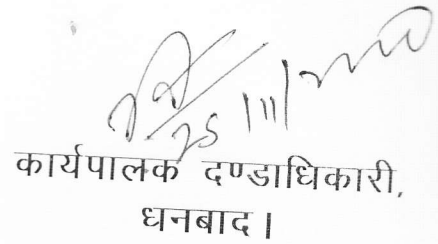 25/11/
कार्यपालक दण्डाधिकारी,
धनबाद।